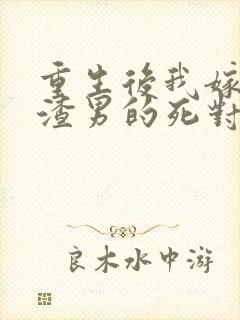 重生後我嫁
渣男的死對
良木水中游